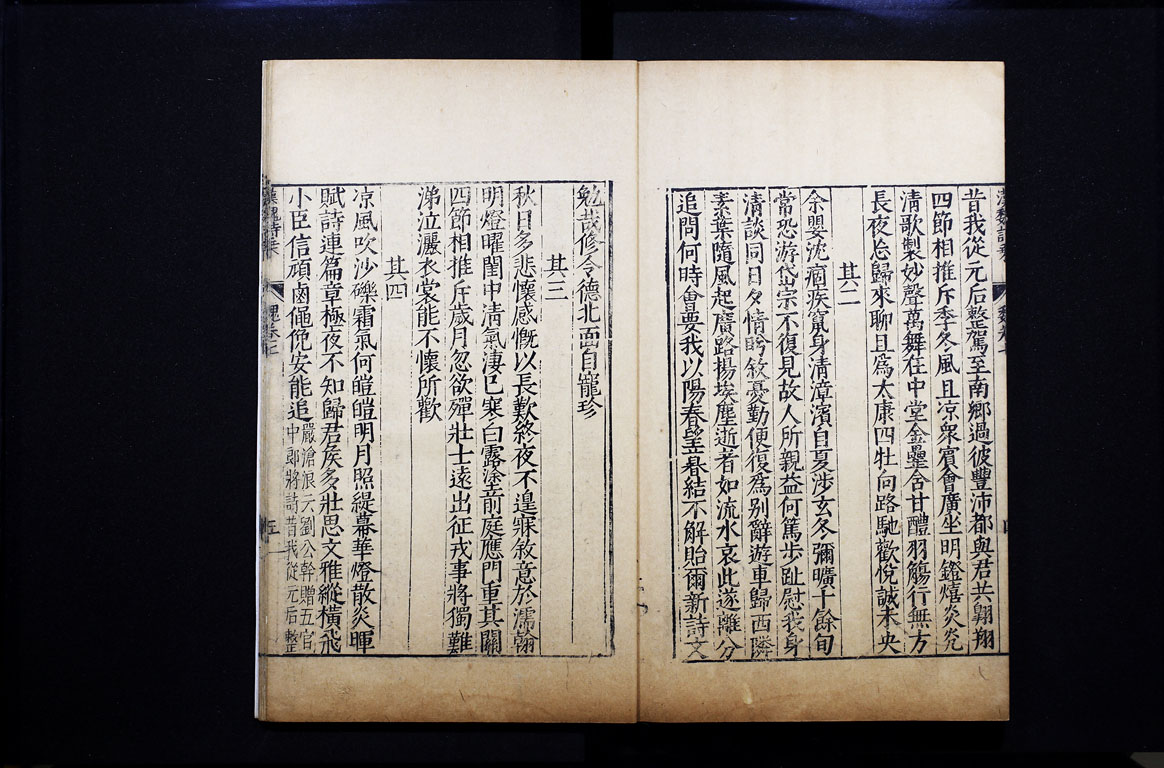 昔我從元后整駕至南鄉過彼豐沛都與君共翺翔
四節相推斥季冬風且凉衆賓會廣坐明鐙熺炎光
清歌製妙聲萬舞在中堂金罍含甘醴羽觴行無方
長夜忩歸來聊且爲太康四牡向路馳歡悅誠未央
其二
余嬰沈痼疾竄身清漳濱自夏涉玄冬彌曠十餘旬
常恐游岱宗不復見故人所親益何篤步趾慰我身
清談同日夕情眄敘憂勤便復爲别辭遊車歸西隣
素葉隨風起廣路揚埃塵逝者如流水哀此遂離分
追問何時會要我以陽春望暮結不解貽爾新詩文
勉哉修令德北面自寵珍
其三
秋日多悲懷感慨以長歎終夜不遑寐敘意於濡翰
明燈曜閨中清氣凄已寒白露塗前庭應門重其關
四節相推斥歲月忽欲殫壯士遠出征戎事將獨難
涕泣灑衣裳能不懷所歡
其四
凉風吹沙礫霜氣何皚皚明月照緹幕華燈散炎暉
賦詩連篇章極夜不知歸君侯多壯思文雅縱橫飛
小臣信頑鹵僶俛安能追
嚴滄浪云劉公幹贈五官
中郎將詩昔我從元后整
漢魏詩乘
魏卷二
五